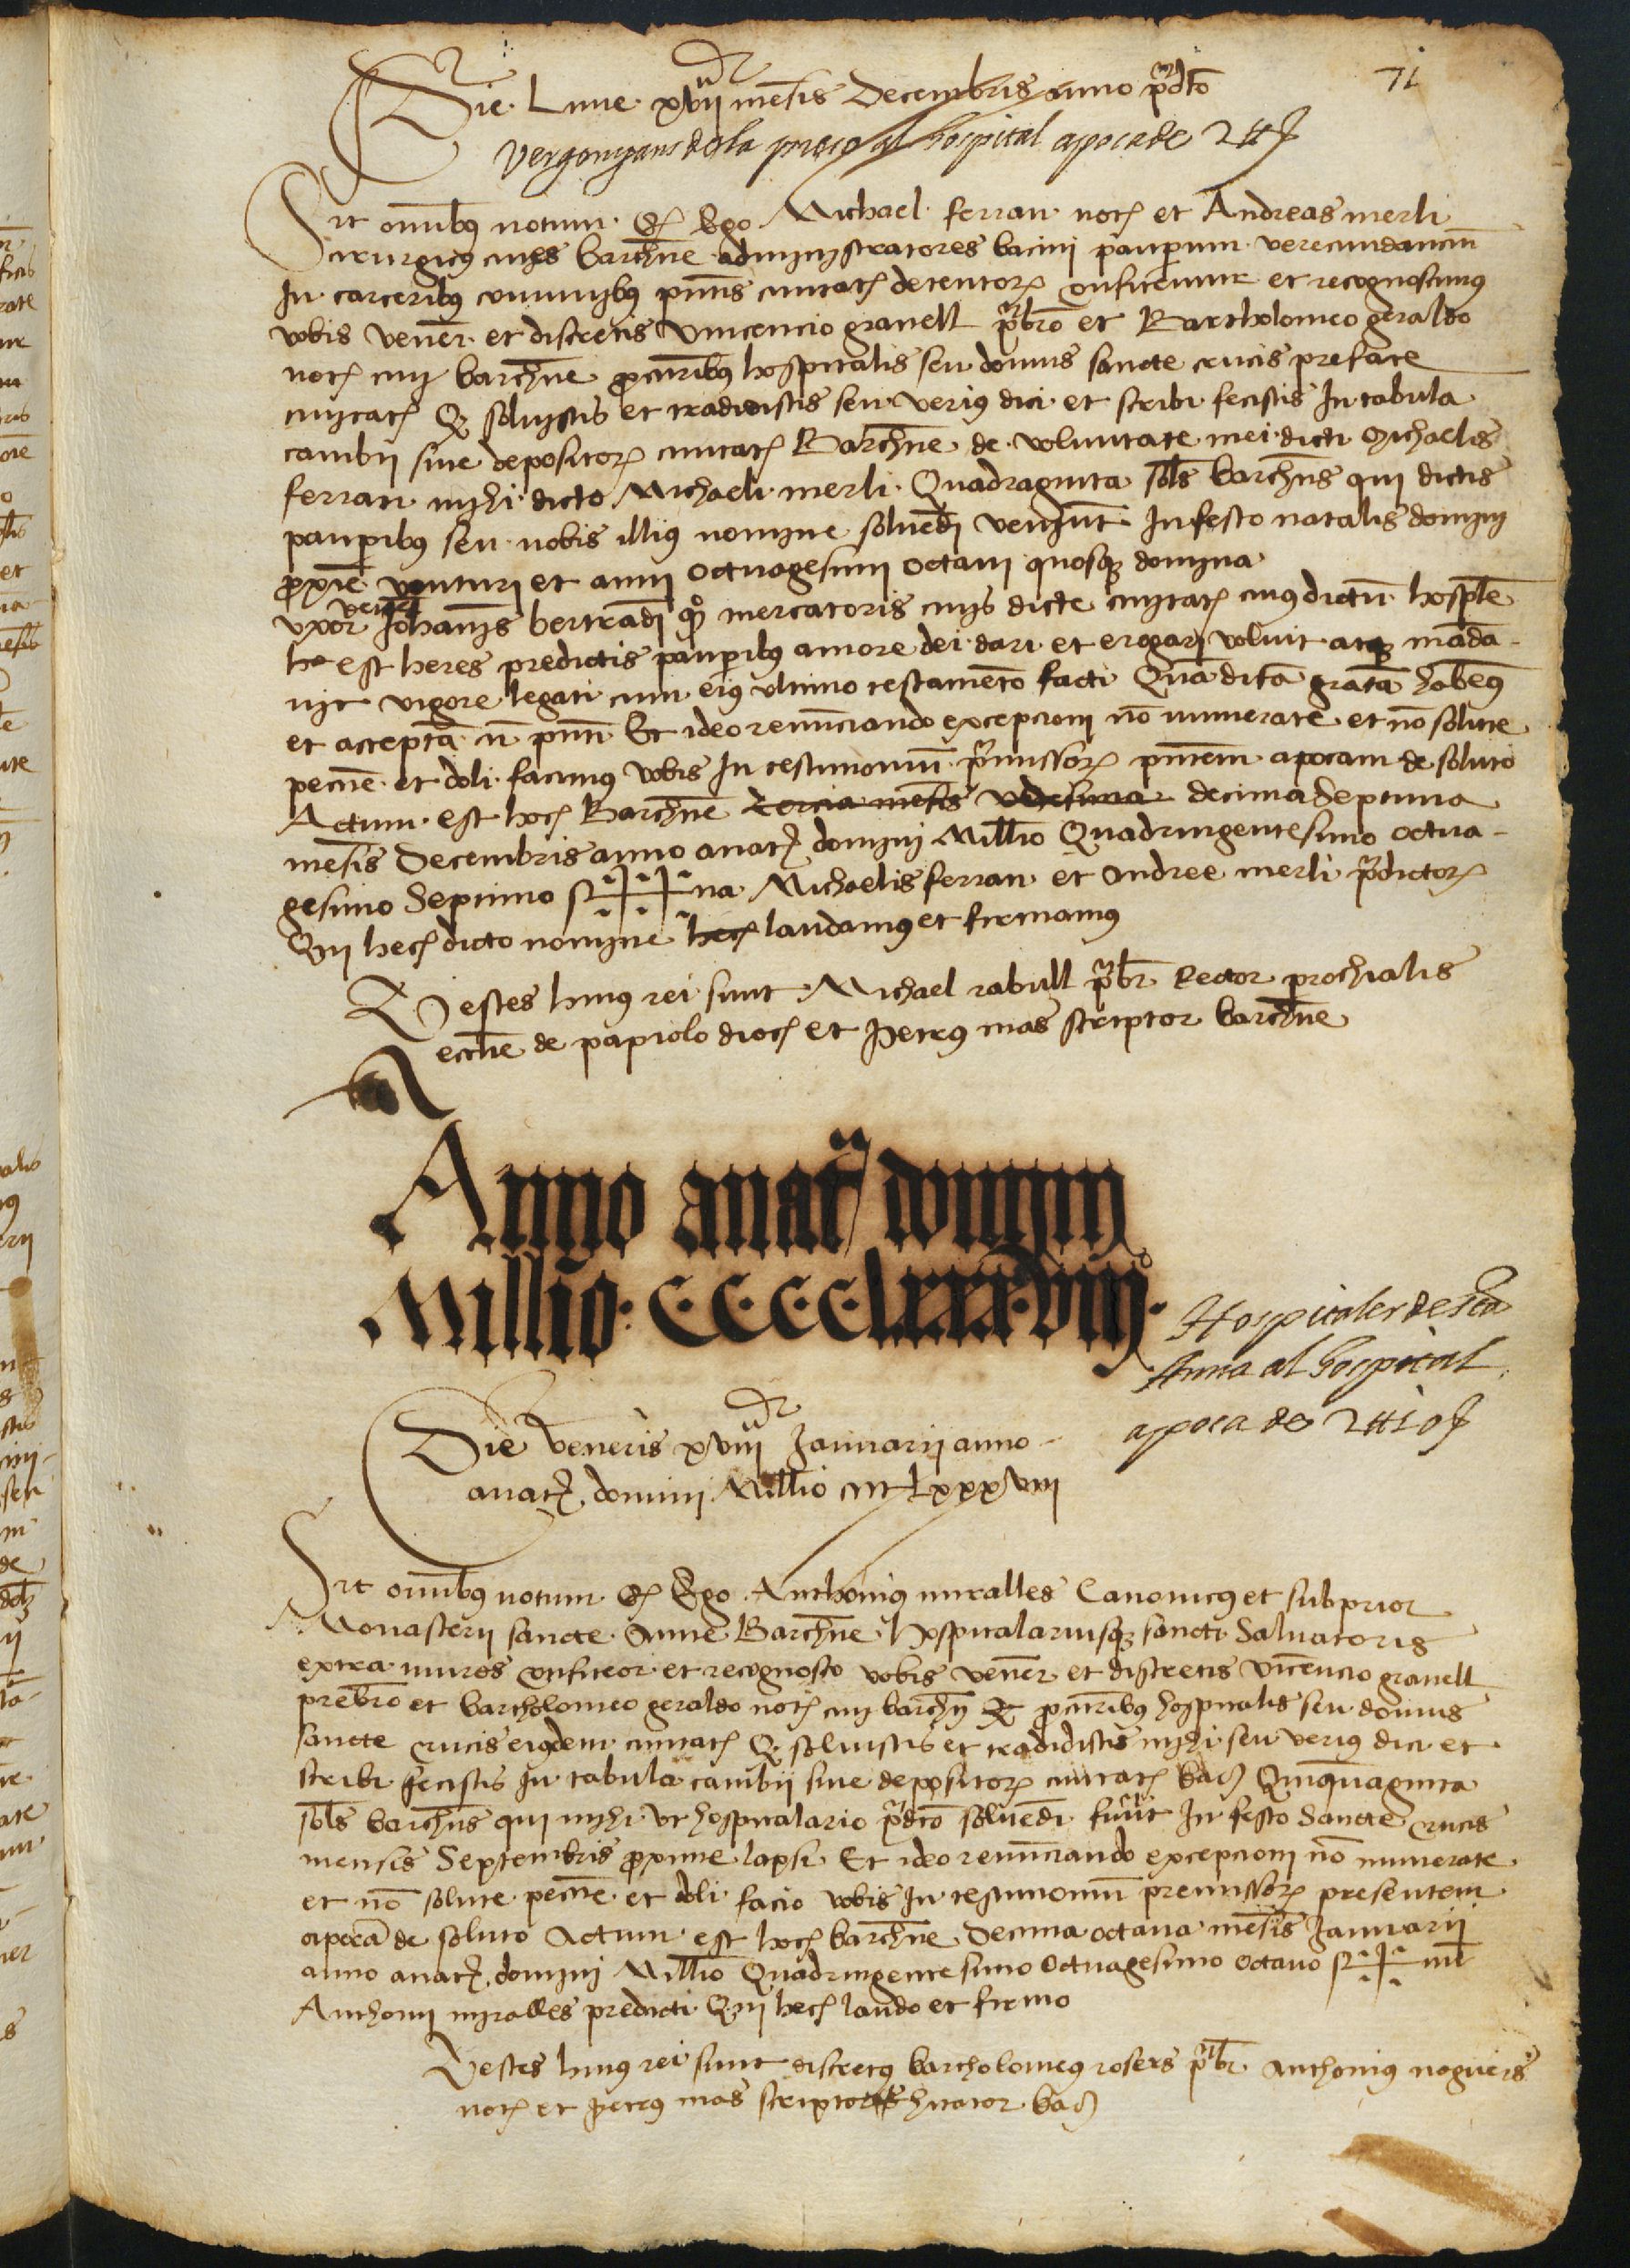 71
Die Lune xvij mēsis Decembris anno p̄dc̄o
Vergonyans de la preso al hospital apoca de 2 ₶ ʃ
Sit omībꝯ notum qꝫ Ego Michael ferran notꝫ et Andreas merli
cirurgicꝯ ciues barchn̄e administratores bacini pauperum verecundanciū
In carceribꝯ comunibꝯ pn̄tis ciuitatꝫ detentorꝝ confitemur et recognoscimꝯ
vobis vener. et discretis vincencio granell p̄bro et Bartholomeo geraldo
notꝫ ciui barchn̄e procuribꝯ hospitalis seu domus sancte crucis prefate
ciuitatꝫ Qꝫ soluistis et tradidistis seu veriꝯ dici et scribi fecistis In tabula
cambij siue depositorꝝ ciuitatꝫ Barchn̄e de voluntate mei dicti Michaelis
ferran mihi dicto Michaeli merli Quadraginta sol̄s barchn̄s qui dictis
pauperibꝯ seu nobis illiꝯ nomine soluēdi veniunt In festo natalis domini
proxīe venturi et anni octuagesimi octaui quosqꝫ domina
vxor vener. Johannis bertrādi qͦ mercatoris ciuis dicte ciuitatꝫ cuiꝯ dictū hospl̄e
hꝰ est heres predictis pauperibꝯ amore dei dari et erogari voluit atqꝫ māda-
uit vigore legati cum eiꝯ vltimo testamēto facti Quā
et acceptā Et ideo renūciando excepcioni nō numerate et nō solute
pecn̄e et doli facimꝯ vobis In testimoniū p̄missorꝝ pn̄tem apocam de soluto
Actum est hocꝫ Barchn̄e tercia mēsis decima septima
mēsis Decembris anno anatꝫ domini Millio Quadringentesimo octua-
gesimo Septimo Sig✝✝✝na Michaelis ferran et Andree merli p̄dictorꝝ
Qui hecꝫ dicto nomine hecꝫ laudamꝯ et firmamꝯ
Testes huiꝯ rei sunt Michael rabull p̄br Rector prochialis
eccl̄ie de papiolo diocꝫ et Petrꝯ mas scriptor barchn̄e
A
Anno anatꝫ dominj
Millio CCCClxxxviijͦ
Hospitaler de Sta
Anna al hospital
apoca de 2 ₶ 10 ʃ
Die Veneris xviij Januarij anno
anatꝫ domini Millio cccc Lxxxviij
Sit omībꝯ notum qꝫ Ego Anthoniꝯ miralles Canonicꝯ et subprior
Monasterij sancte Anne Barchn̄e hospitalariusqꝫ sancti Saluatoris
extra muros confiteor et recognosco vobis vener. et discretis vicencio granell
prebr̄o et bartholomeo geraldo notꝫ ciui barchn̄ procuribꝯ hospitalis seu domus
sancte crucis eiꝯdem ciuitatꝫ Qꝫ soluistis et tradidistis mihi seu verius dici et
scribi fecistis In tabula cambij siue depositorꝝ ciuitatꝫ bar Quinquaginta
sol̄s barchn̄s qui mihi vt hospitalario p̄dc̄o soluēdi fuerūt In festo Sancte crucis
mensis Septembris proxime lapsi Et ideo renūciando excepcioni nō numerate
et nō solute pecn̄e et doli facio vobis In testimoniū premissorꝝ presentem
apocā de soluto Actum est hocꝫ barchn̄e Decima octaua mēsis Januarij
anno anatꝫ domini Millio Quadringentesimo Octuagesimo Octauo Sig✝nū
Anthonij miralles predicti Qui hecꝫ laudo et firmo
Testes huiꝯ rei sunt discretꝯ bartholomeꝯ rosers p̄br Anthoniꝯ noguers
notꝫ et Petrꝯ mas scriptor bar